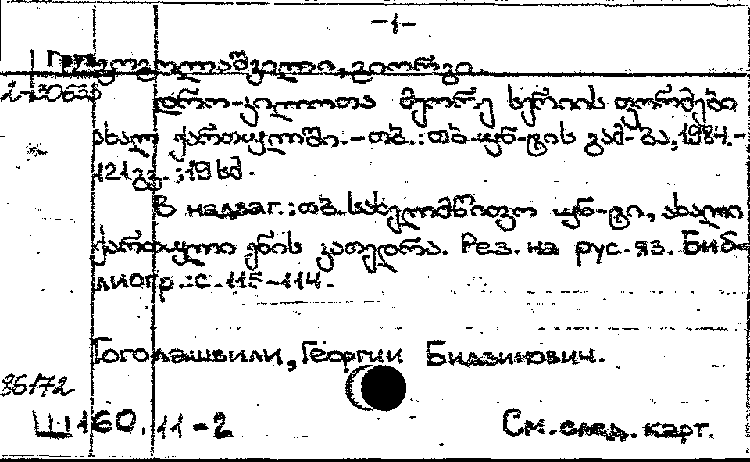 -1-
Груз. გოგოლაშვილი, გიორგი.
2-30635
დრო-კილოთა მეორე სერიის ფორმები
ახალ ქართულში.-თბ.:თბ-უნ-ტის გამ-ბა,1984.-
121გვ.;19სმ.
В надзаг.:თბ.სახელმწიფო უნ-ტი, ახალი
ქართული ენის კათედრა. Рез. на рус. яз. Биб-
лиогр.:с.115-114.
Гоголашвили, Георгий Бидзинович.
86172
Ш160.11-2 См. след. карт.